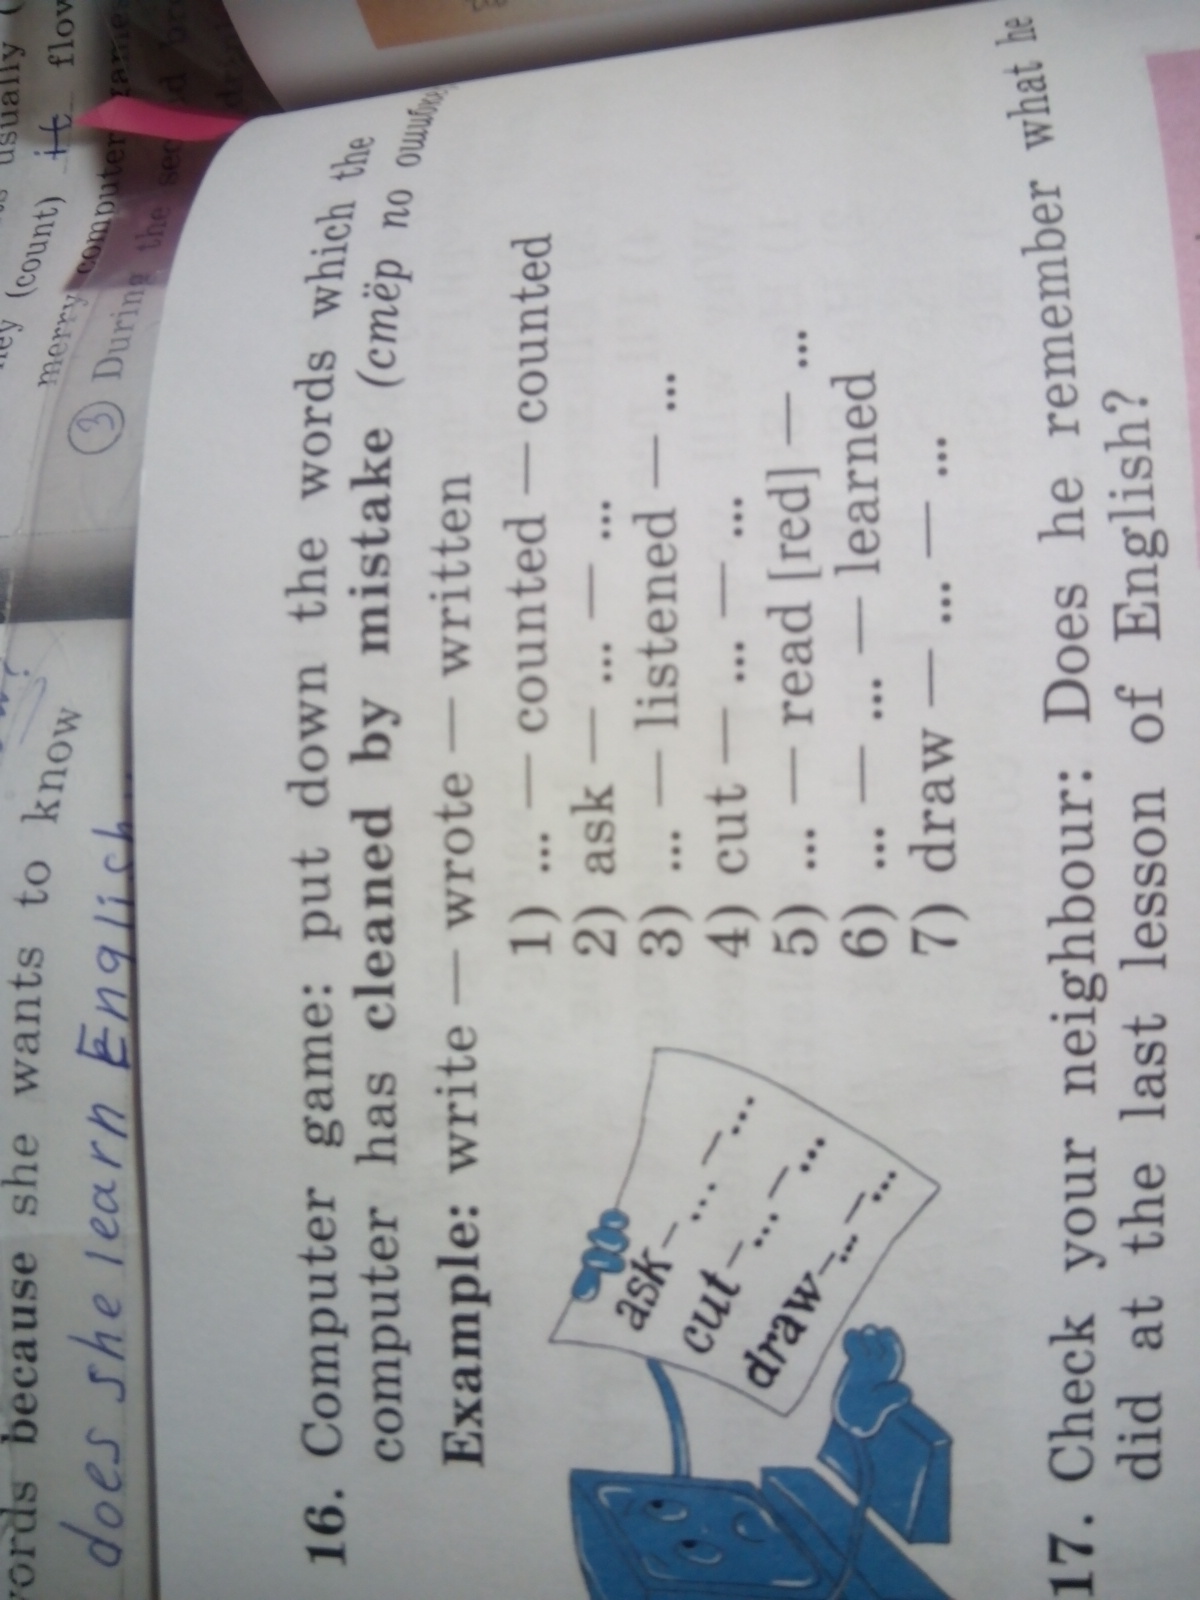 usually (
ney (count) it flow
merry computer games
3 During the sec
words because she wants to know
does she learn English
16. Computer game: put down the words which the
computer has cleaned by mistake (стёр по ошибке
Example: write — wrote — written
1) ... — counted — counted
2) ask — ... — ...
3) ... — listened — ...
4) cut — ... — ...
5) ... — read [red] — ...
6) ... — ... — learned
7) draw — ... — ...
ask — ... — ...
cut — ... — ...
draw — ... — ...
17. Check your neighbour: Does he remember what he
did at the last lesson of English?